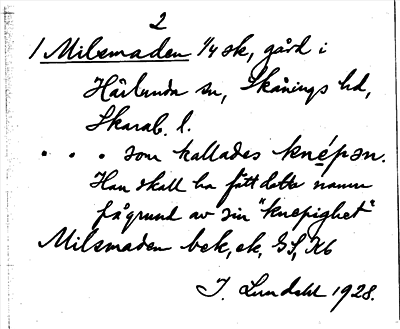 2
1 Milsmaden 1/4 sk, gård i
Härlunda sn, Skånings hd,
Skarab. l.
. . . som kallades knépən.
Han skall ha fått detta namn
på grund av sin "knepighet"
Milsmaden bek, ek, GS, Kb
J. Lundahl 1928.